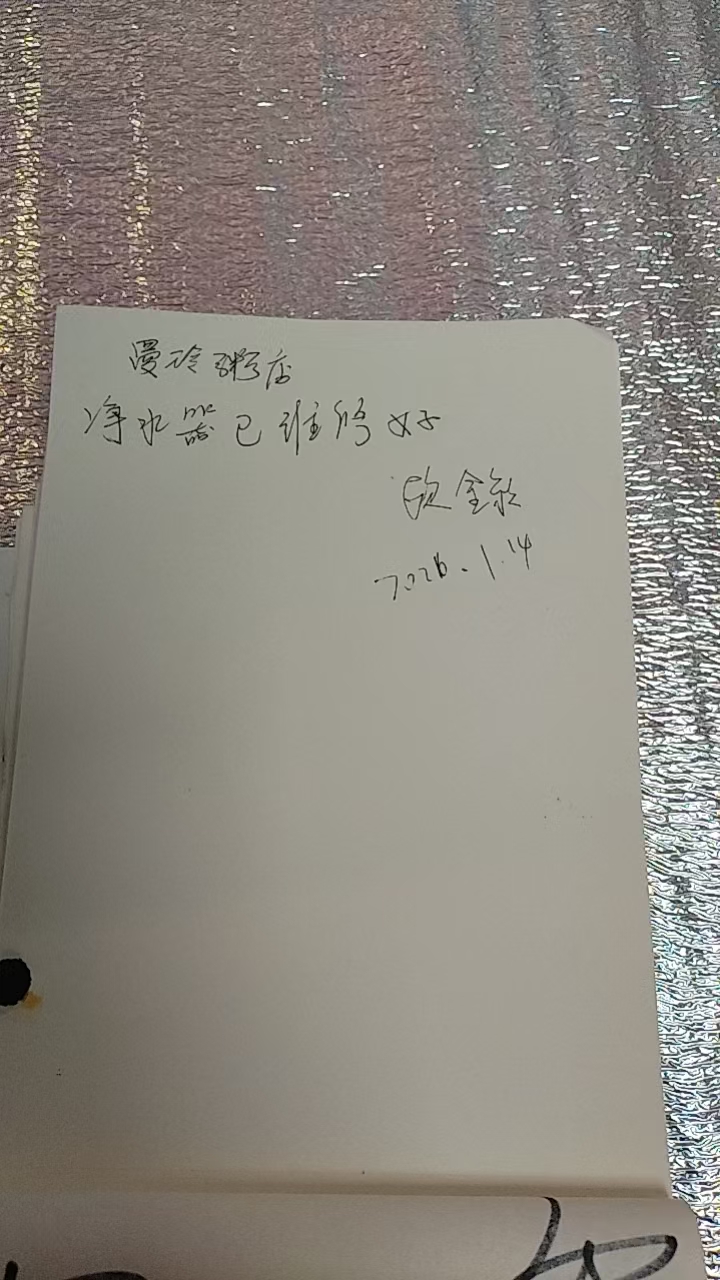 曼玲粥店
净水器已维修好
金
2026.1.14